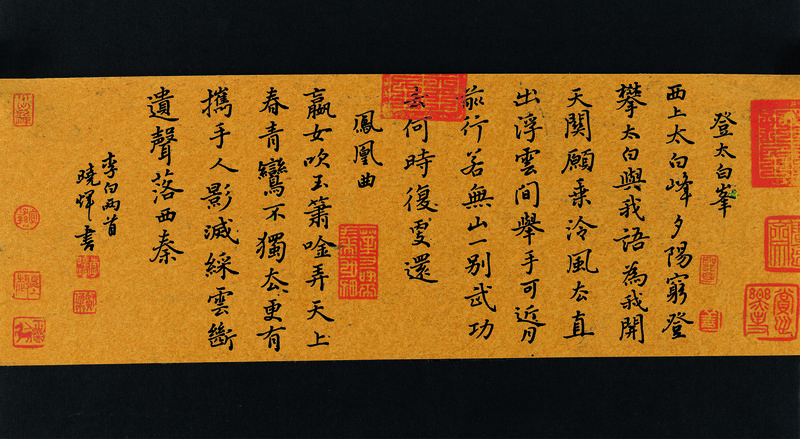 登太白峯
西上太白峰夕陽窮登
攀太白與我語為我開
天關願乘泠風去直
出浮雲間舉手可近月
前行若無山一別武功
去何時復更還
鳳凰曲
嬴女吹玉簫唫弄天上
春青鸞不獨去更有
攜手人影滅綵雲斷
遺聲落西秦
李白兩首
曉輝書